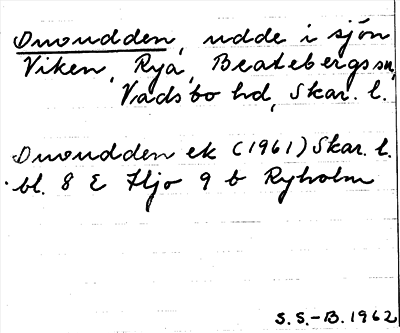 Dmoudden, udde i sjön
Viken, Rya, Beatebergs sn,
Vadsbo hd, Skar. l.
Dmoudden ek (1961) Skar. l.
bl. 8 E Hjo 9 b Ryholm
S.S.-B. 1962